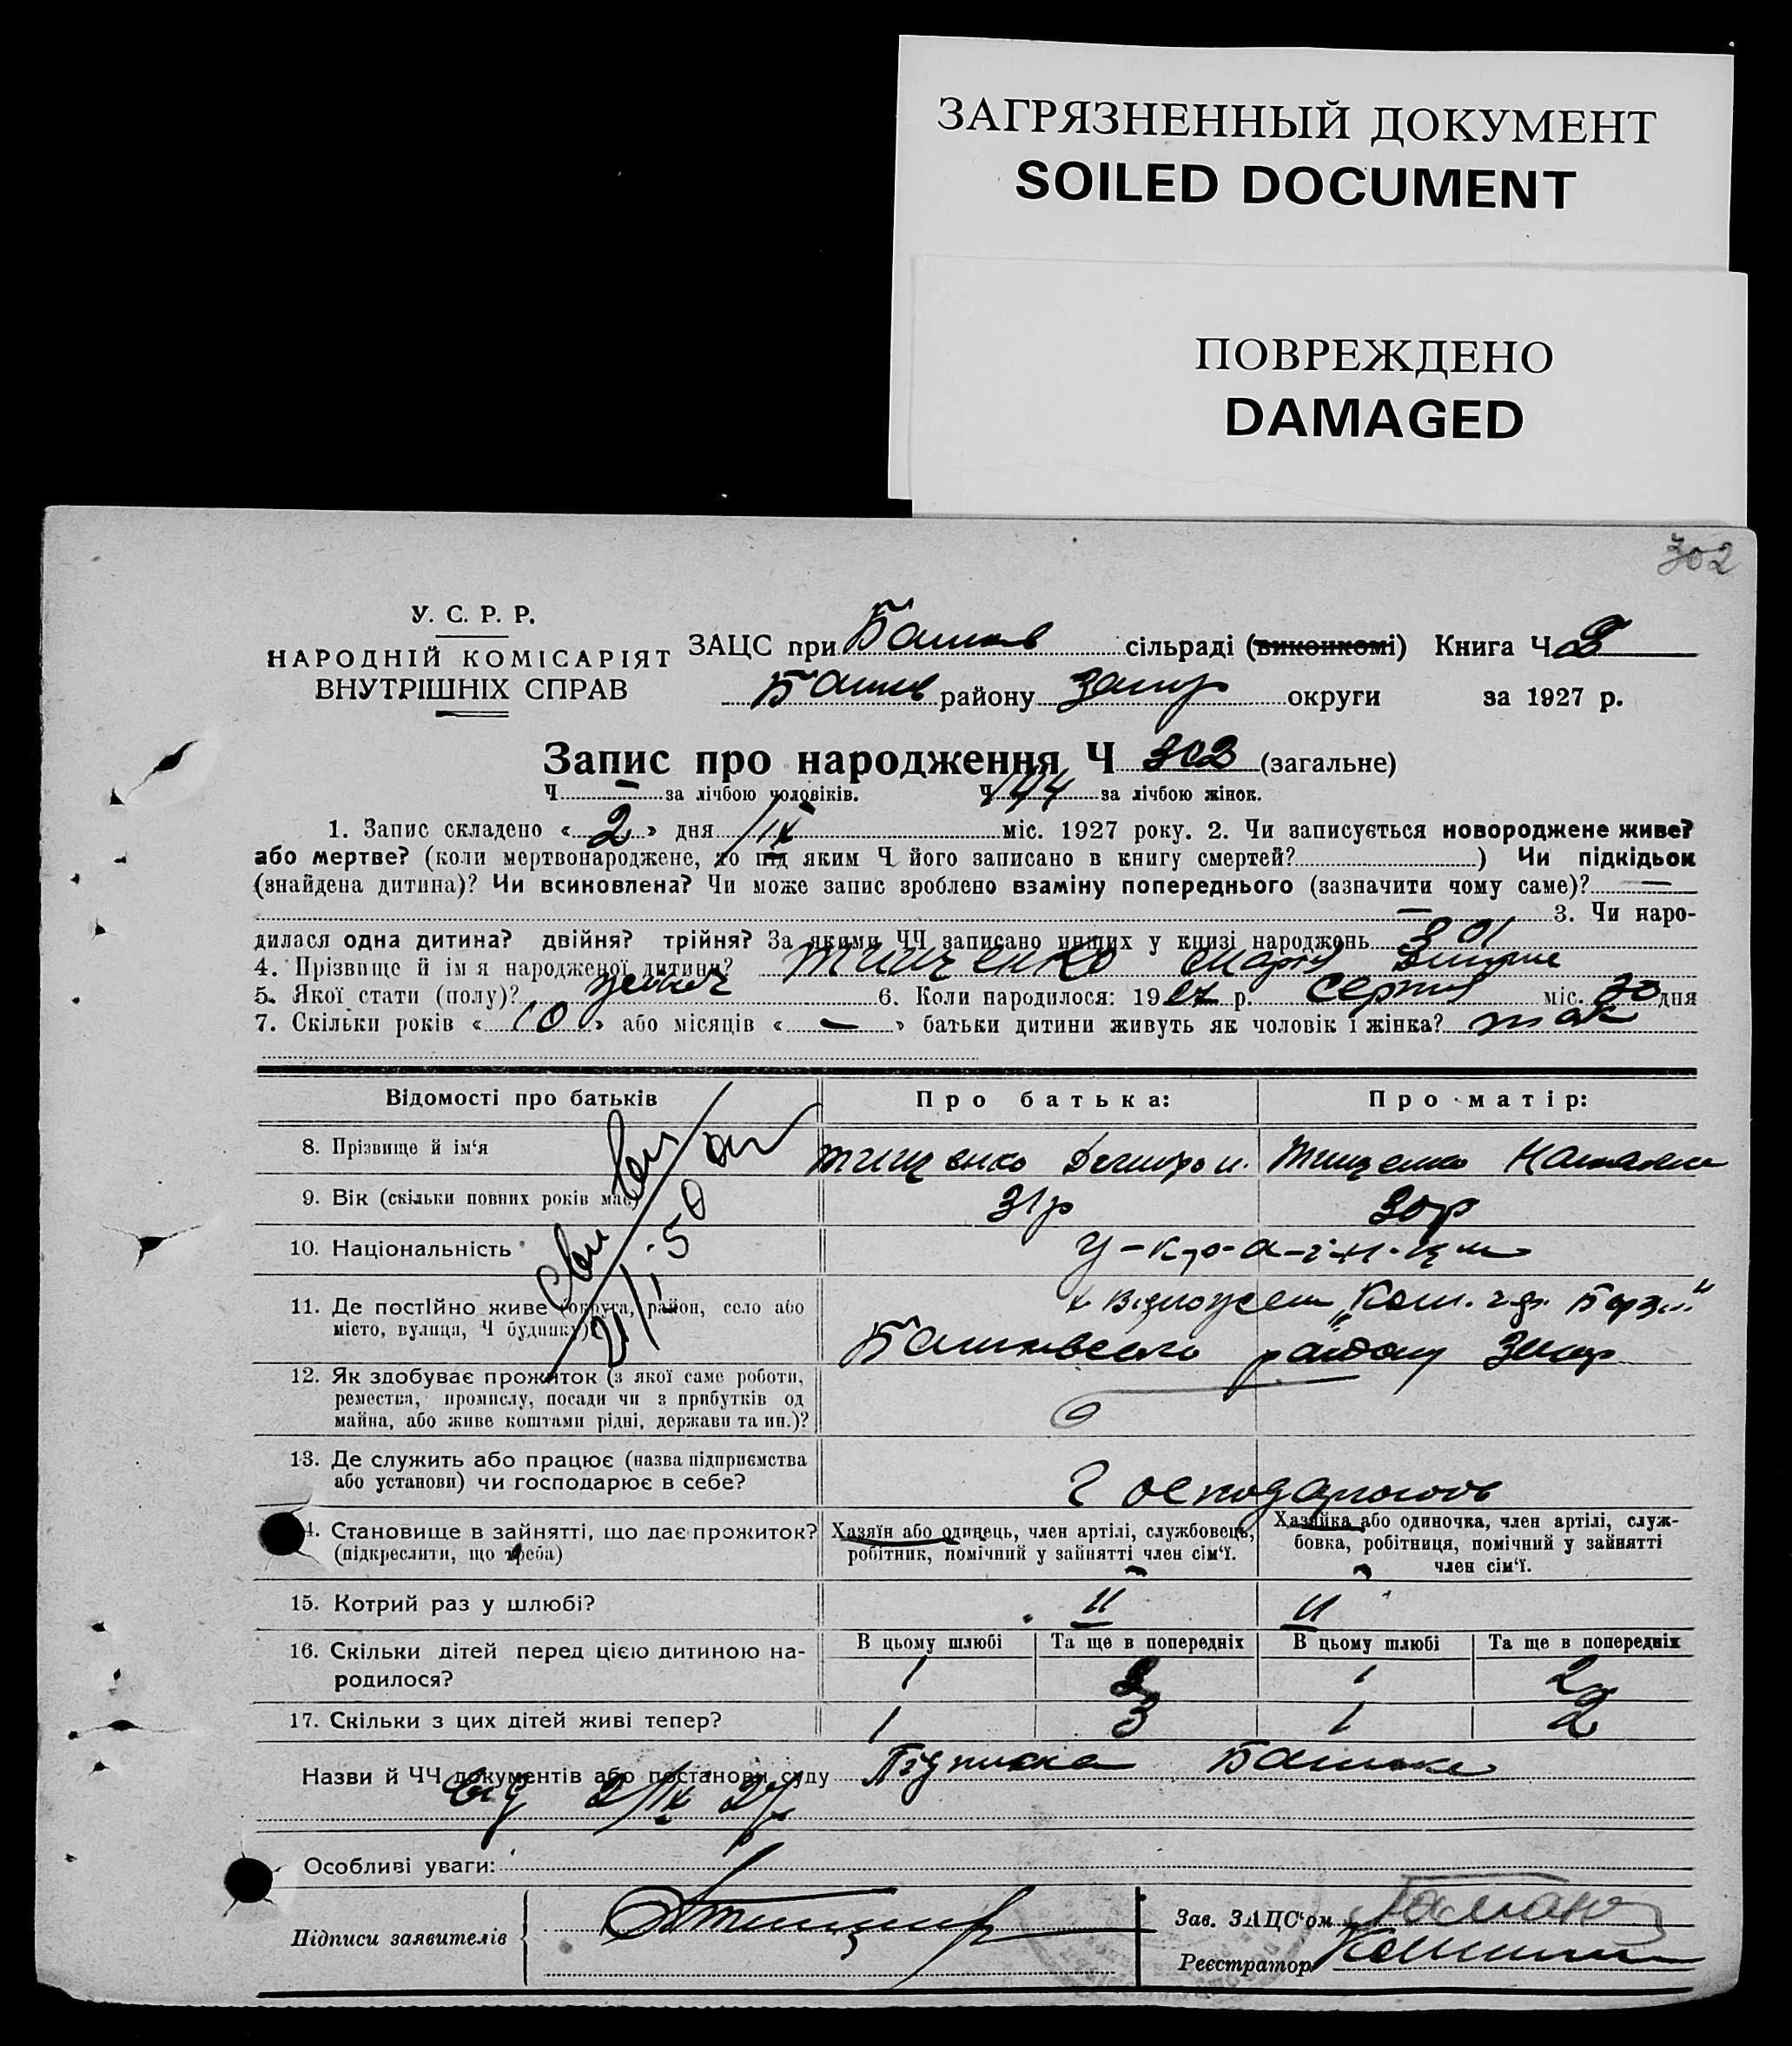 ЗАГРЯЗНЕННЫЙ ДОКУМЕНТ
SOILED DOCUMENT
ПОВРЕЖДЕНО
DAMAGED
302
У. С. Р. Р.
НАРОДНІЙ КОМІСАРІЯТ
ВНУТРІШНІХ СПРАВ
ЗАЦС при сільраді (виконкомі) Книга Ч
району Запор округи за 1927 р.
Запис про народження Ч 302 (загальне)
Ч — за лічбою чоловіків. Ч 144 за лічбою жінок.
1. Запис складено « 2 » дня /IX міс. 1927 року. 2. Чи записується новороджене живе?
або мертве? (коли мертвонароджене, то під яким Ч його записано в книгу смертей? ) Чи підкідьок
(знайдена дитина)? Чи всиновлена? Чи може запис зроблено взаміну попереднього (зазначити чому саме)? —
— 3. Чи наро-
дилася одна дитина? двійня? трійня? За якими ЧЧ записано инших у книзі народжень 301
4. Прізвище й ім'я народженої дитини? Тищенко Марія
5. Якої стати (полу)? 6. Коли народилося: 1927 р. Серпня міс. 30 дня
7. Скільки років « 10 » або місяців « — » батьки дитини живуть як чоловік і жінка? так
Відомості про батьків Про батька: Про матір:
8. Прізвище й ім'я Тищенко Тищенко
9. Вік (скільки повних років має) 31р 30р
10. Національність У-к-р-а-ї-н-ц-і
11. Де постійно живе (округа, район, село або
місто, вулиця, Ч будинку)? району
12. Як здобуває прожиток (з якої саме роботи,
ремества, промислу, посади чи з прибутків од
майна, або живе коштами рідні, держави та ин.)?
13. Де служить або працює (назва підприємства
або установи) чи господарює в себе? Господарюють
14. Становище в зайнятті, що дає прожиток?
(підкреслити, що треба)
Хазяїн або одинець, член артілі, службовець,
робітник, помічний у зайнятті член сім'ї.
Хазяйка або одиночка, член артілі, служ-
бовка, робітниця, помічний у зайнятті
член сім'ї.
15. Котрий раз у шлюбі? II II
16. Скільки дітей перед цією дитиною на-
родилося?
В цьому шлюбі Та ще в попередніх В цьому шлюбі Та ще в попередніх
1 3 1 2
17. Скільки з цих дітей живі тепер? 1 3 1 2
Назви й ЧЧ документів або постанови суду Підписка Батька
від 2/IX 27
Особливі уваги:
Підписи заявителів
Зав. ЗАЦС'ом
Реєстратор